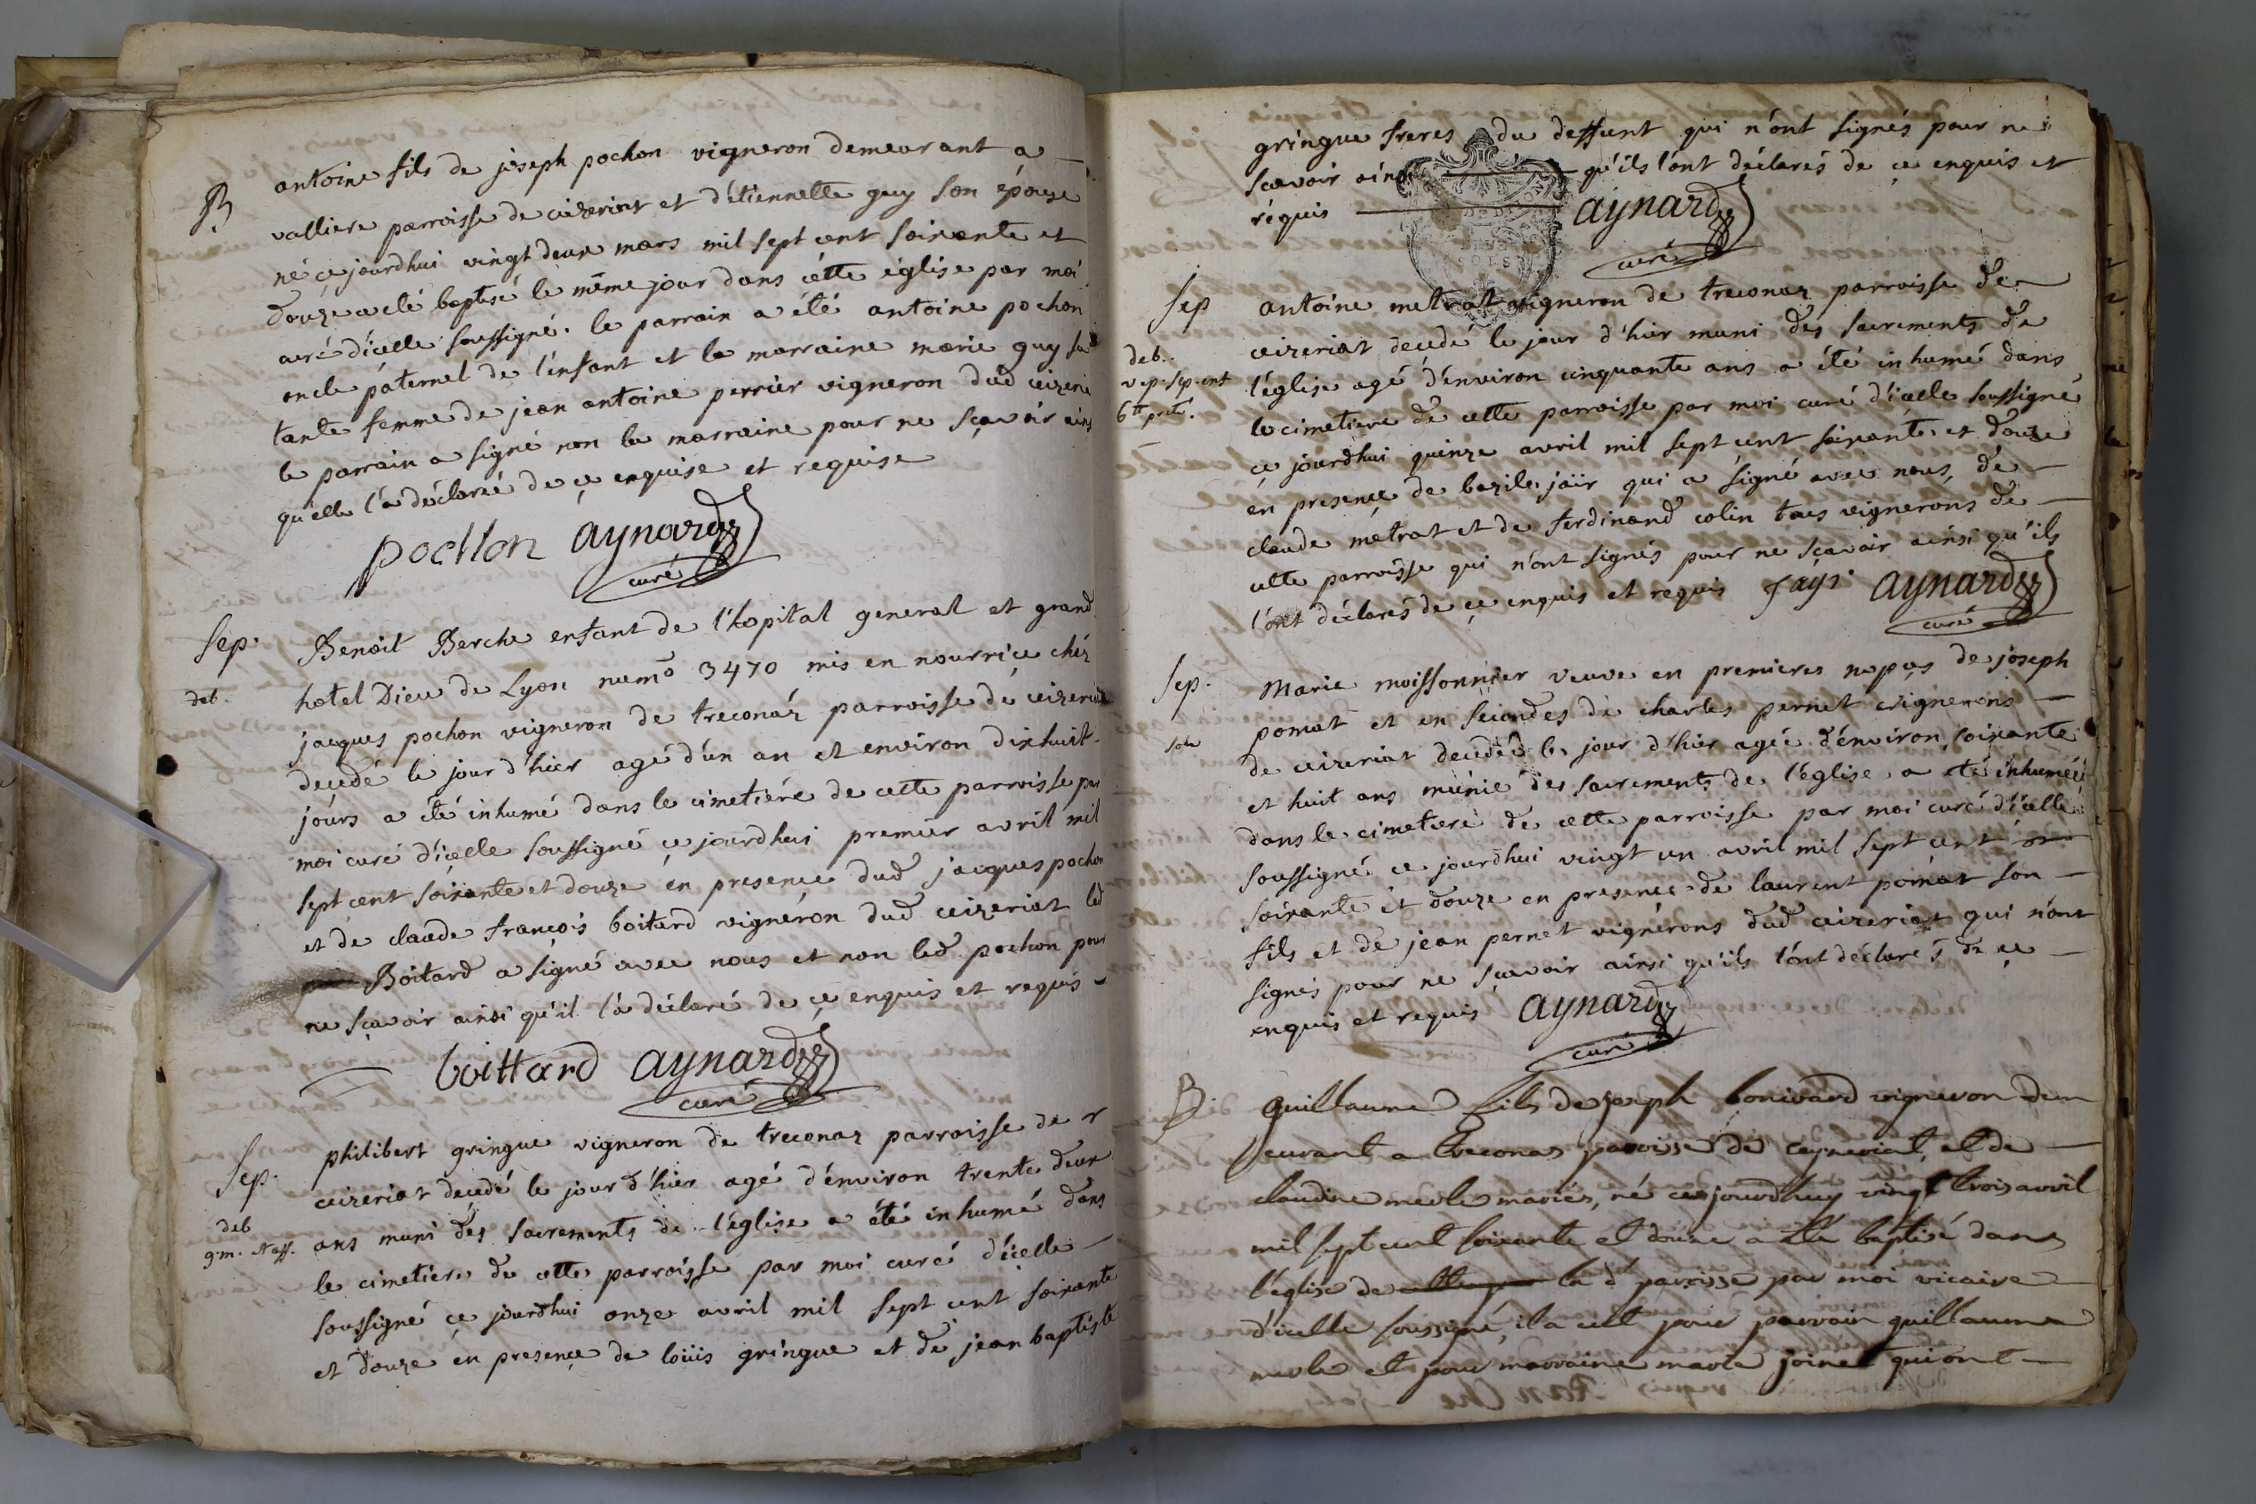 B
antoine fils de joseph pochon vigneron demeurant a
valliere parroisse de ceizeriat et d'étiennette guy son épouse
né ce jourdhui vingt deux mars mil sept cent soixante et
douze a eté baptisé le même jour dans cétte église par moi
curé d'icelle soussigné. le parrain a été antoine pochon
oncle paternel de l'enfant et la marraine marie guy sa
tante femme de jean antoine perrier vigneron dud ceizeriat
le parrain a signé non la marraine pour ne sçavoir ains
qu'elle l'a déclaré de ce enquise et requise
pochon aynard
curé
Sep.
deb.
Benoit Berche enfant de l'hopital general et grand
hotel Dieu de Lyon numo 3470 mis en nourrice chéz
jacques pochon vigneron de treconáz parroisse de ceizeriat
decedé le jour d'hier agé d'un an et environ dixhuit
jours a été inhumé dans le cimetiére de cette parroisse par
moi curé d'icelle soussigné ce jourdhui premier avril mil
sept cent soixante et douze en presence dud jacques pochon
et de claude françois boitard vignéron dud ceizeriat led
Boitard a signé avec nous et non led pochon pour
ne sçavoir ainsi qu'il l'a déclaré de ce enquis et requis
boittard aynard
curé
Sep.
deb
g.m.
philibert gringue vigneron de treconaz parroisse de
ceizeriat decedé le jour d'hier agé d'énviron trente deux
ans muni des sacrements de l'église a été inhumé dans
le cimetiere de cette parroisse par moi curé d'icelle
soussigné ce jourdhui onze avril mil sept cent soixante
et douze en presence de loüis gringue et de jean baptiste
gringue freres du deffunt qui n'ont signés pour ne
scavoir ainsi qu'ils l'ont déclarés de ce enquis et
réquis aynard
curé
Sep
deb.
antoine metrat vigneron de treconaz parroisse de
ceizeriat decedé le jour d'hier muni des sacrements de
l'église agé d'énviron cinquante ans a été inhumé dans
le cimetiere de cette parroisse par moi curé d'icelle soussigné
ce jourdhui quinze avril mil sept cent soixante et douze
en presence de bazile jaÿr qui a signé avec nous, de
claude métrat et de ferdinand colin tous vignerons de
cette parroisse qui n'ont signés pour ne scavoir ainsi qu'ils
l'ont déclarés de ce enquis et requis aynard
curé
Sep.
Marie moissonnier veuve en premieres nopces de joseph
pomat et en secondes de charles pernet vignerons
de ceizeriat decedée le jour d'hier agée d'énviron soixante
et huit ans munie des sacrements de l'église a eté inhumée
dans le cimetiere de cette parroisse par moi curé d'icelle
soussigné ce jourdhui vingt un avril mil sept cent
soixante et douze en presence de laurent pomat son
fils et de jean pernet vignérons dud ceizeriat qui n'ont
signés pour ne sçavoir ainsi qu'ils l'ont déclarés de ce
enquis et requis aynard
curé
B
guillaume fils de joseph bonivard vigneron dem
eurant a treconas paroisse de ceyzeriat, et de
claudine merle mariés, né ce jourdhuy vingt trois avril
mil sept cent soixante et douze a été baptisé dans
l'église de la de paroisse par moi vicaire
d'icelle soussigné, il a eut pour parrain guillaume
merle et pour marraine marie joinet qui ont